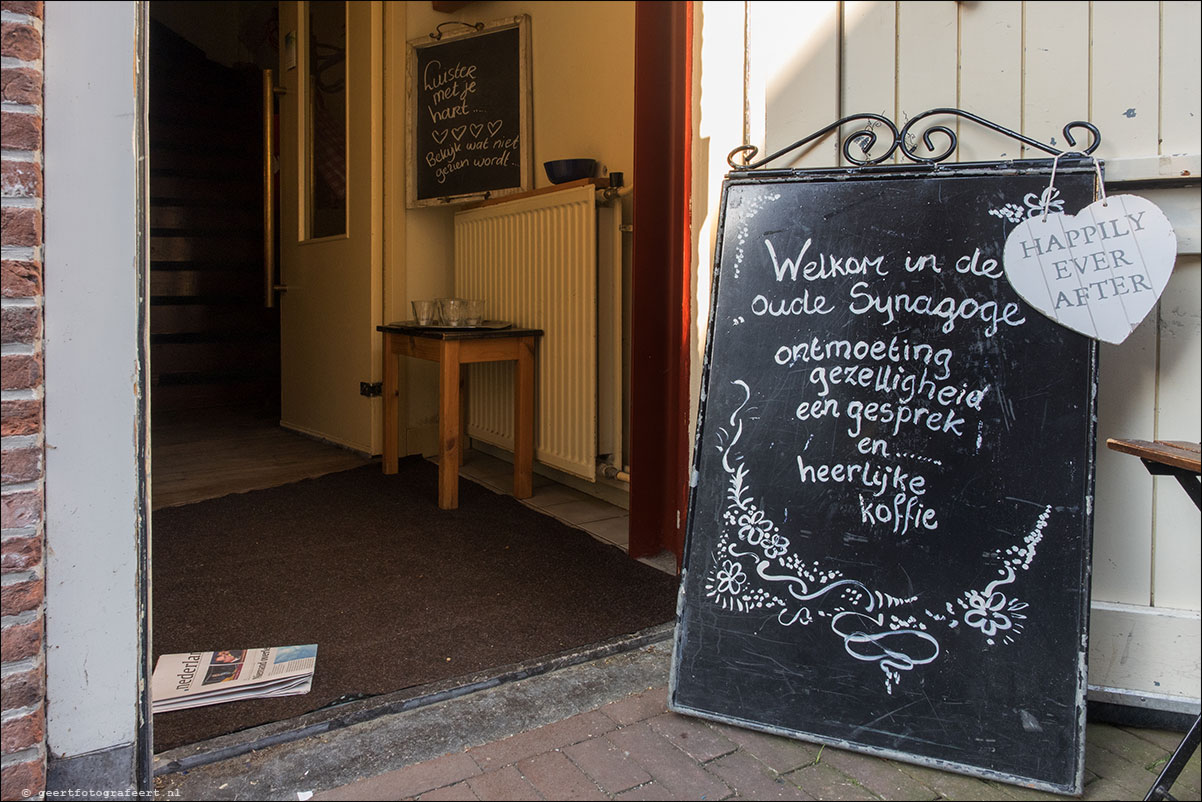 Luister
met je
hart....
Bekijk wat niet
gezien wordt...
Welkom in de
„oude Synagoge
ontmoeting
gezelligheid
een gesprek!
en........
heerlijke
koffie
HAPPILY
EVER
AFTER
nederlan
© geertfotografeert.nl